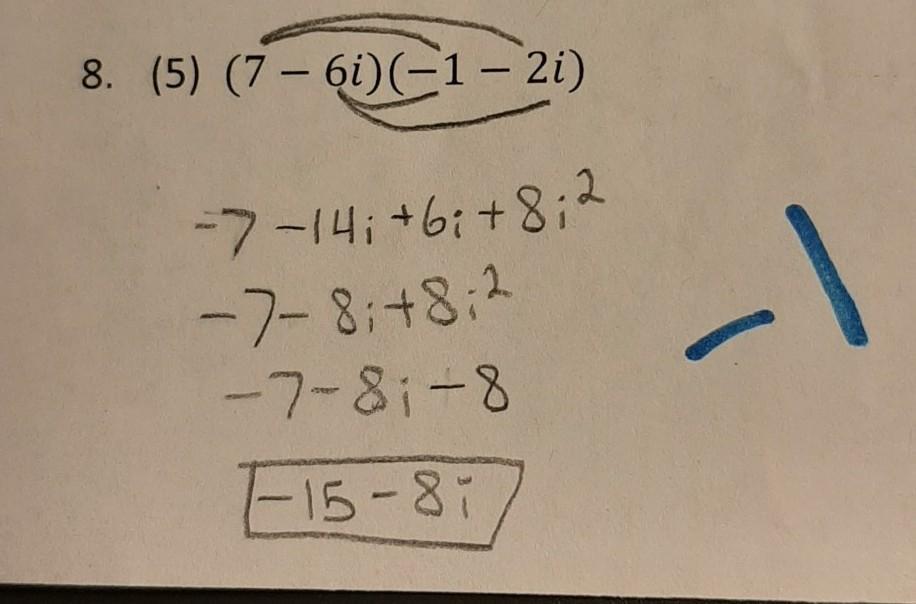 8. (5) (7 − 6i)(−1 − 2i)
-7 -14i +6i +8i²
-7 - 8i +8i²
-7 - 8i - 8
-15 - 8i
-1